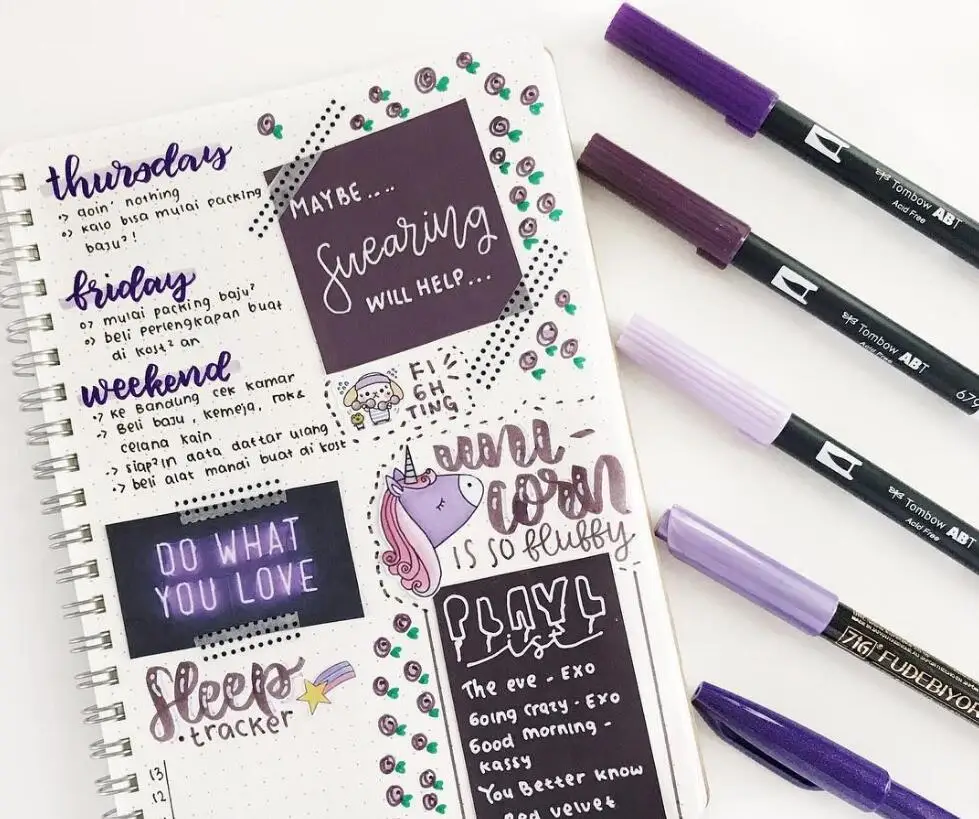 thursday
-> goin' nothing
-> kalo bisa mulai packing
baju?!
friday
-> mulai packing baju?
-> beli perlengkapan buat
di kost² an
weekend
-> ke Bandung cek kamar
-> Beli baju, kemeja, rok&
celana kain
-> siap²in data daftar ulang
-> beli alat mandi buat di kost
MAYBE....
Swearing
WILL HELP...
FI
GH
TING
uni-
corn
IS SO fluffy
DO WHAT
YOU LOVE
Sleep
tracker
13
12
PLAYL
ist
The eve - EXO
Going crazy - EXO
Good morning -
kassy
You Better know
Red velvet
Tombow ABT
Acid Free
Tombow ABT
Acid Free
679
Tombow ABT
Acid Free
ZIG FUDEBIYOR